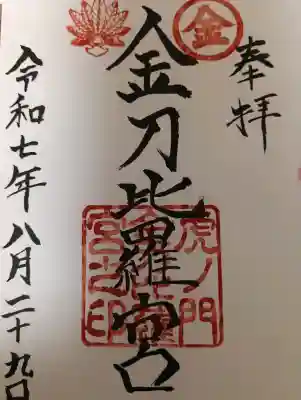 奉拝
金
金刀比羅宮
虎ノ門
宮之印
令和七年八月二十九日